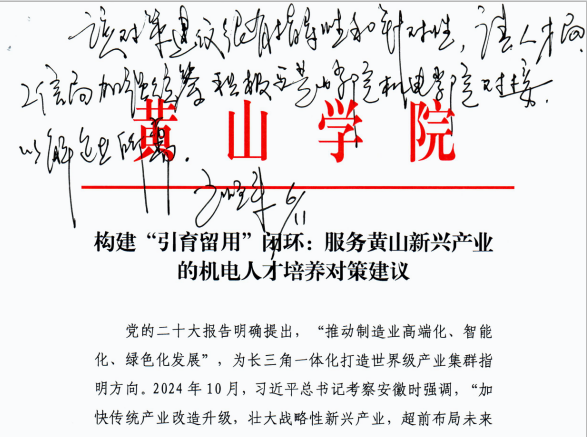 该对策建议很有指导性和针对性,请人才局、
工信局加强统筹 积极与黄山学院机电学院对接.
以解企业所需.
6/11
黄 山 学 院
构建“引育留用”闭环：服务黄山新兴产业
的机电人才培养对策建议
党的二十大报告明确提出，“推动制造业高端化、智能
化、绿色化发展”，为长三角一体化打造世界级产业集群指
明方向。2024 年 10 月，习近平总书记考察安徽时强调，“加
快传统产业改造升级，壮大战略性新兴产业，超前布局未来